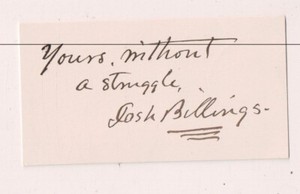 Yours, without
a struggle,
Josh Billings-